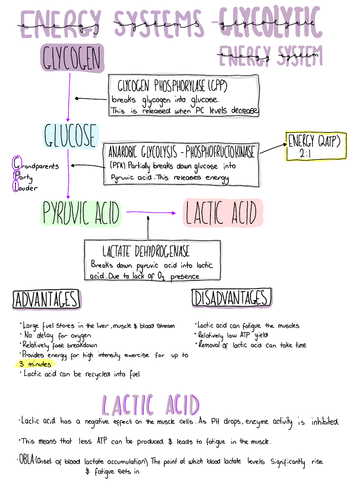 ENERGY SYSTEMS GLYCOLYTIC
ENERGY SYSTEM
GLYCOGEN
GLYCOGEN PHOSPHORYLASE (GPP)
breaks glycogen into glucose.
This is released when PC levels decrease
GLUCOSE
ANAROBIC GLYCOLYSIS - PHOSPHOFRUCTOKINASE
(PFK) Partially breaks down glucose into
Pyruvic acid. This releases energy
ENERGY (2ATP)
2:1
Grandparents
Party
Louder
PYRUVIC ACID
LACTIC ACID
LACTATE DEHYDROGENASE
Breaks down pyruvic acid into lactic
acid. Due to lack of O2 presence
ADVANTAGES
• Large fuel stores in the liver, muscle & blood stream
• No delay for oxygen
• Relatively fast breakdown
• Provides energy for high intensity exercise for up to
3 minutes
• Lactic acid can be recycled into fuel
DISADVANTAGES
• Lactic acid can fatigue the muscles
• Relatively low ATP yield
• Removal of lactic acid can take time
LACTIC ACID
• Lactic acid has a negative effect on the muscle cells. As PH drops, enzyme activity is inhibited
• This means that less ATP can be produced & leads to fatigue in the muscle.
• OBLA (Onset of blood lactate accumulation) The point of which blood lactate levels significantly rise
& fatigue sets in